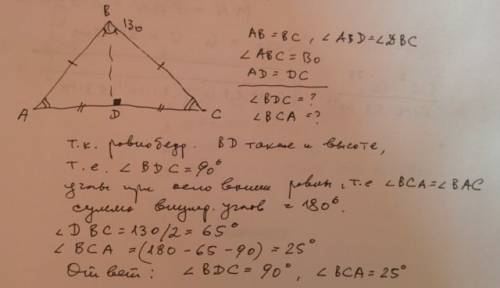 B
130
A
D
C
AB = BC, ∠ABD = ∠DBC
∠ABC = 130
AD = DC
∠BDC = ?
∠BCA = ?
т.к. равнобедр. BD также и высоте,
т.е. ∠BDC = 90°
углы при основании равны, т.е ∠BCA = ∠BAC
сумма внутр. углов = 180°.
∠DBC = 130/2 = 65°
∠BCA = (180 - 65 - 90) = 25°
Ответ: ∠BDC = 90°, ∠BCA = 25°